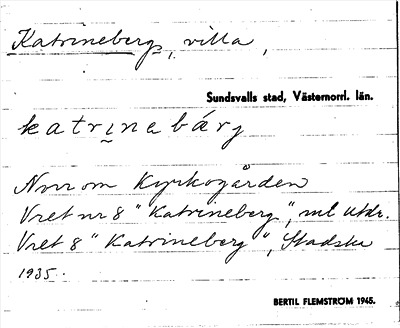 Katrineberg, villa,
Sundsvalls stad, Västernorrl. län.
katrinebärg
Norr om Kyrkogården
Vret nr 8 "Katrineberg", enl utdr.
Vret 8 "Katrineberg", Stadska
1935.
BERTIL FLEMSTRÖM 1945.